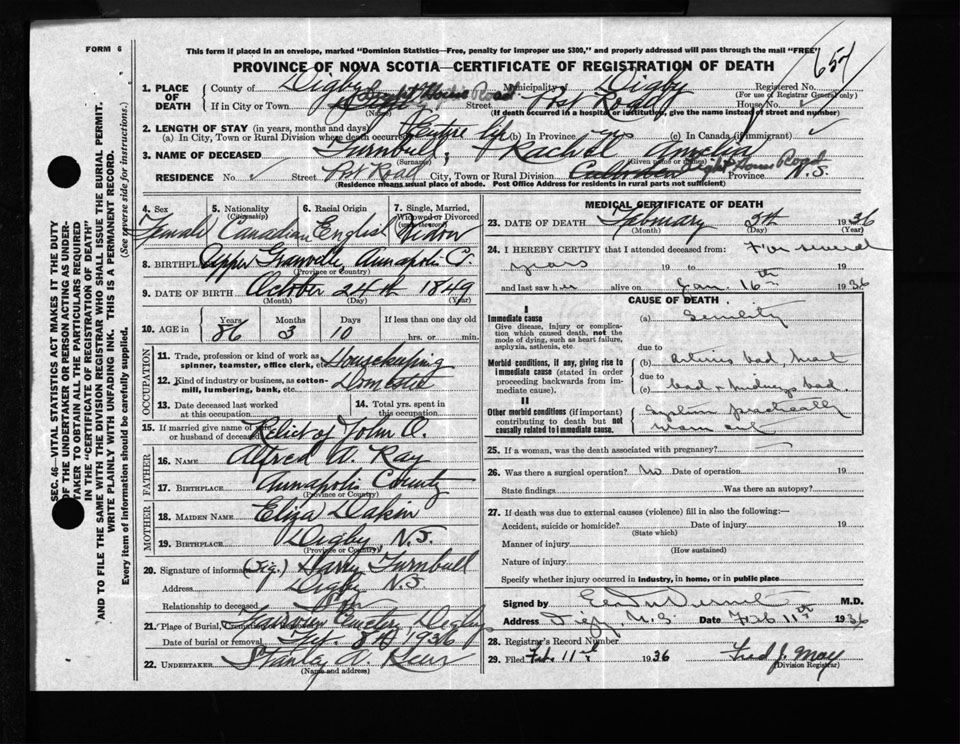 FORM 6
This form if placed in an envelope, marked "Dominion Statistics—Free, penalty for improper use $300," and properly addressed will pass through the mail "FREE"
654
PROVINCE OF NOVA SCOTIA—CERTIFICATE OF REGISTRATION OF DEATH
1. PLACE OF DEATH
County of Digby Municipality Digby Registered No.
(For use of Registrar General only)
If in City or Town Light House Road Street Post Road House No.
(Name) (If death occurred in a hospital or institution, give the name instead of street and number)
2. LENGTH OF STAY (in years, months and days)
(a) In City, Town or Rural Division where death occurred Entire life (b) In Province (c) In Canada (if immigrant)
3. NAME OF DECEASED Turnbull, Rachel Amelia
(Surname) (Given name or names)
RESIDENCE No. Street Post Road City, Town or Rural Division Light House Road Province N.S.
(Residence means usual place of abode. Post Office Address for residents in rural parts not sufficient)
4. Sex 5. Nationality (Citizenship) 6. Racial Origin 7. Single, Married, Widowed or Divorced
Female Canadian English Widow
8. BIRTHPLACE Upper Granville, Annapolis C.
(Province or Country)
9. DATE OF BIRTH October 24th 1849
(Month) (Day) (Year)
10. AGE in Years Months Days If less than one day old
86 3 10 hrs. or min.
OCCUPATION
11. Trade, profession or kind of work as spinner, teamster, office clerk, etc. Housekeeping
12. Kind of industry or business, as cotton-mill, lumbering, bank, etc. Domestic
13. Date deceased last worked at this occupation
14. Total yrs. spent in this occupation
15. If married give name of wife or husband of deceased Relict of John O.
FATHER
16. NAME Alfred A. Ray
17. BIRTHPLACE Annapolis County
(Province or Country)
MOTHER
18. MAIDEN NAME Eliza Dakin
19. BIRTHPLACE Digby, N.S.
(Province or Country)
20. Signature of informant (Sig.) Harry Turnbull
Address Digby N.S.
Relationship to deceased Son
21. Place of Burial, Cremation or Removal Cemetery, Digby
Date of burial or removal Feb. 8th 1936
22. UNDERTAKER Stanley A.
(Name and address)
MEDICAL CERTIFICATE OF DEATH
23. DATE OF DEATH February 5th 1936
(Month) (Day) (Year)
24. I HEREBY CERTIFY that I attended deceased from: For several
years 19 to 19
and last saw her alive on Jan. 16th 1936
CAUSE OF DEATH
I
Immediate cause
Give disease, injury or complication which caused death, not the mode of dying, such as heart failure, asphyxia, asthenia, etc.
(a) Senility
due to
Morbid conditions, if any, giving rise to immediate cause (stated in order proceeding backwards from immediate cause).
(b) Arteries bad, heart
due to
(c) bad & kidneys bad.
II
Other morbid conditions (if important) contributing to death but not causally related to immediate cause.
System practically
worn out
25. If a woman, was the death associated with pregnancy?
26. Was there a surgical operation? No Date of operation 19
State findings Was there an autopsy?
27. If death was due to external causes (violence) fill in also the following:—
Accident, suicide or homicide? Date of injury 19
(State which)
Manner of injury
(How sustained)
Nature of injury
Specify whether injury occurred in industry, in home, or in public place
Signed by M.D.
Address Digby, N.S. Date Feb 11th 1936
28. Registrar's Record Number
29. Filed Feb. 11th 1936 Fred J. May
(Division Registrar)
SEC. 46—VITAL STATISTICS ACT MAKES IT THE DUTY
OF THE UNDERTAKER OR PERSON ACTING AS UNDER-
TAKER TO OBTAIN ALL THE PARTICULARS REQUIRED
IN THE "CERTIFICATE OF REGISTRATION OF DEATH"
AND TO FILE THE SAME WITH THE DIVISION REGISTRAR WHO SHALL ISSUE THE BURIAL PERMIT.
WRITE PLAINLY WITH UNFADING INK. THIS IS A PERMANENT RECORD.
Every item of information should be carefully supplied. (See reverse side for instructions.)